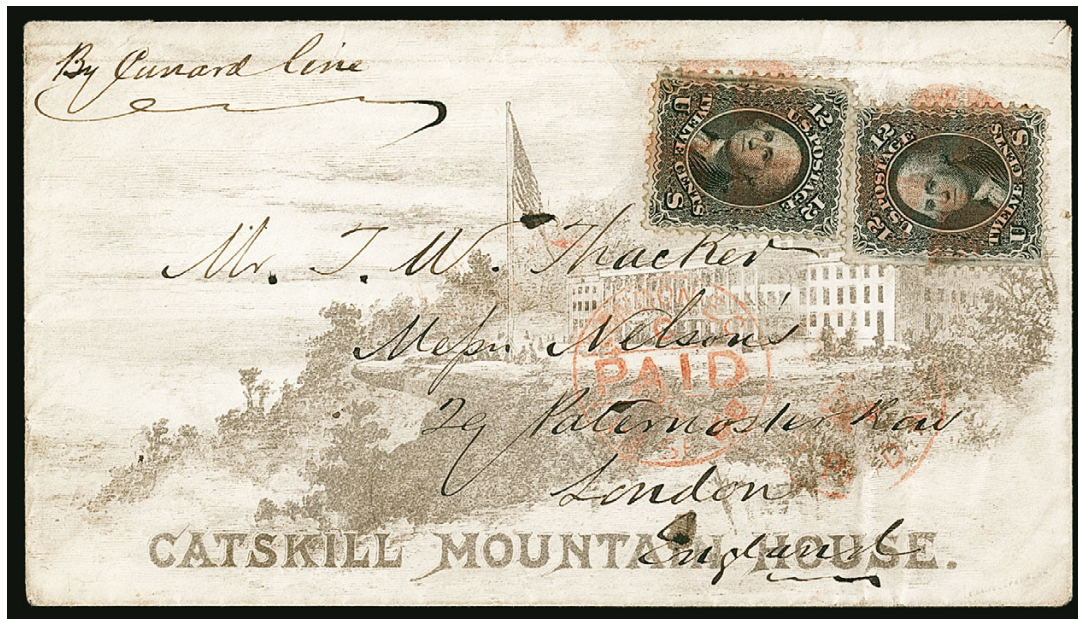 By Cunard Line
12 12
U.S. POSTAGE
TWELVE CENTS
U S
12 12
U.S. POSTAGE
TWELVE CENTS
U S
Mr. T. W. Thacker
Messrs Nelson's
PAID
29 Paternoster Row
London
England
CATSKILL MOUNTAIN HOUSE.